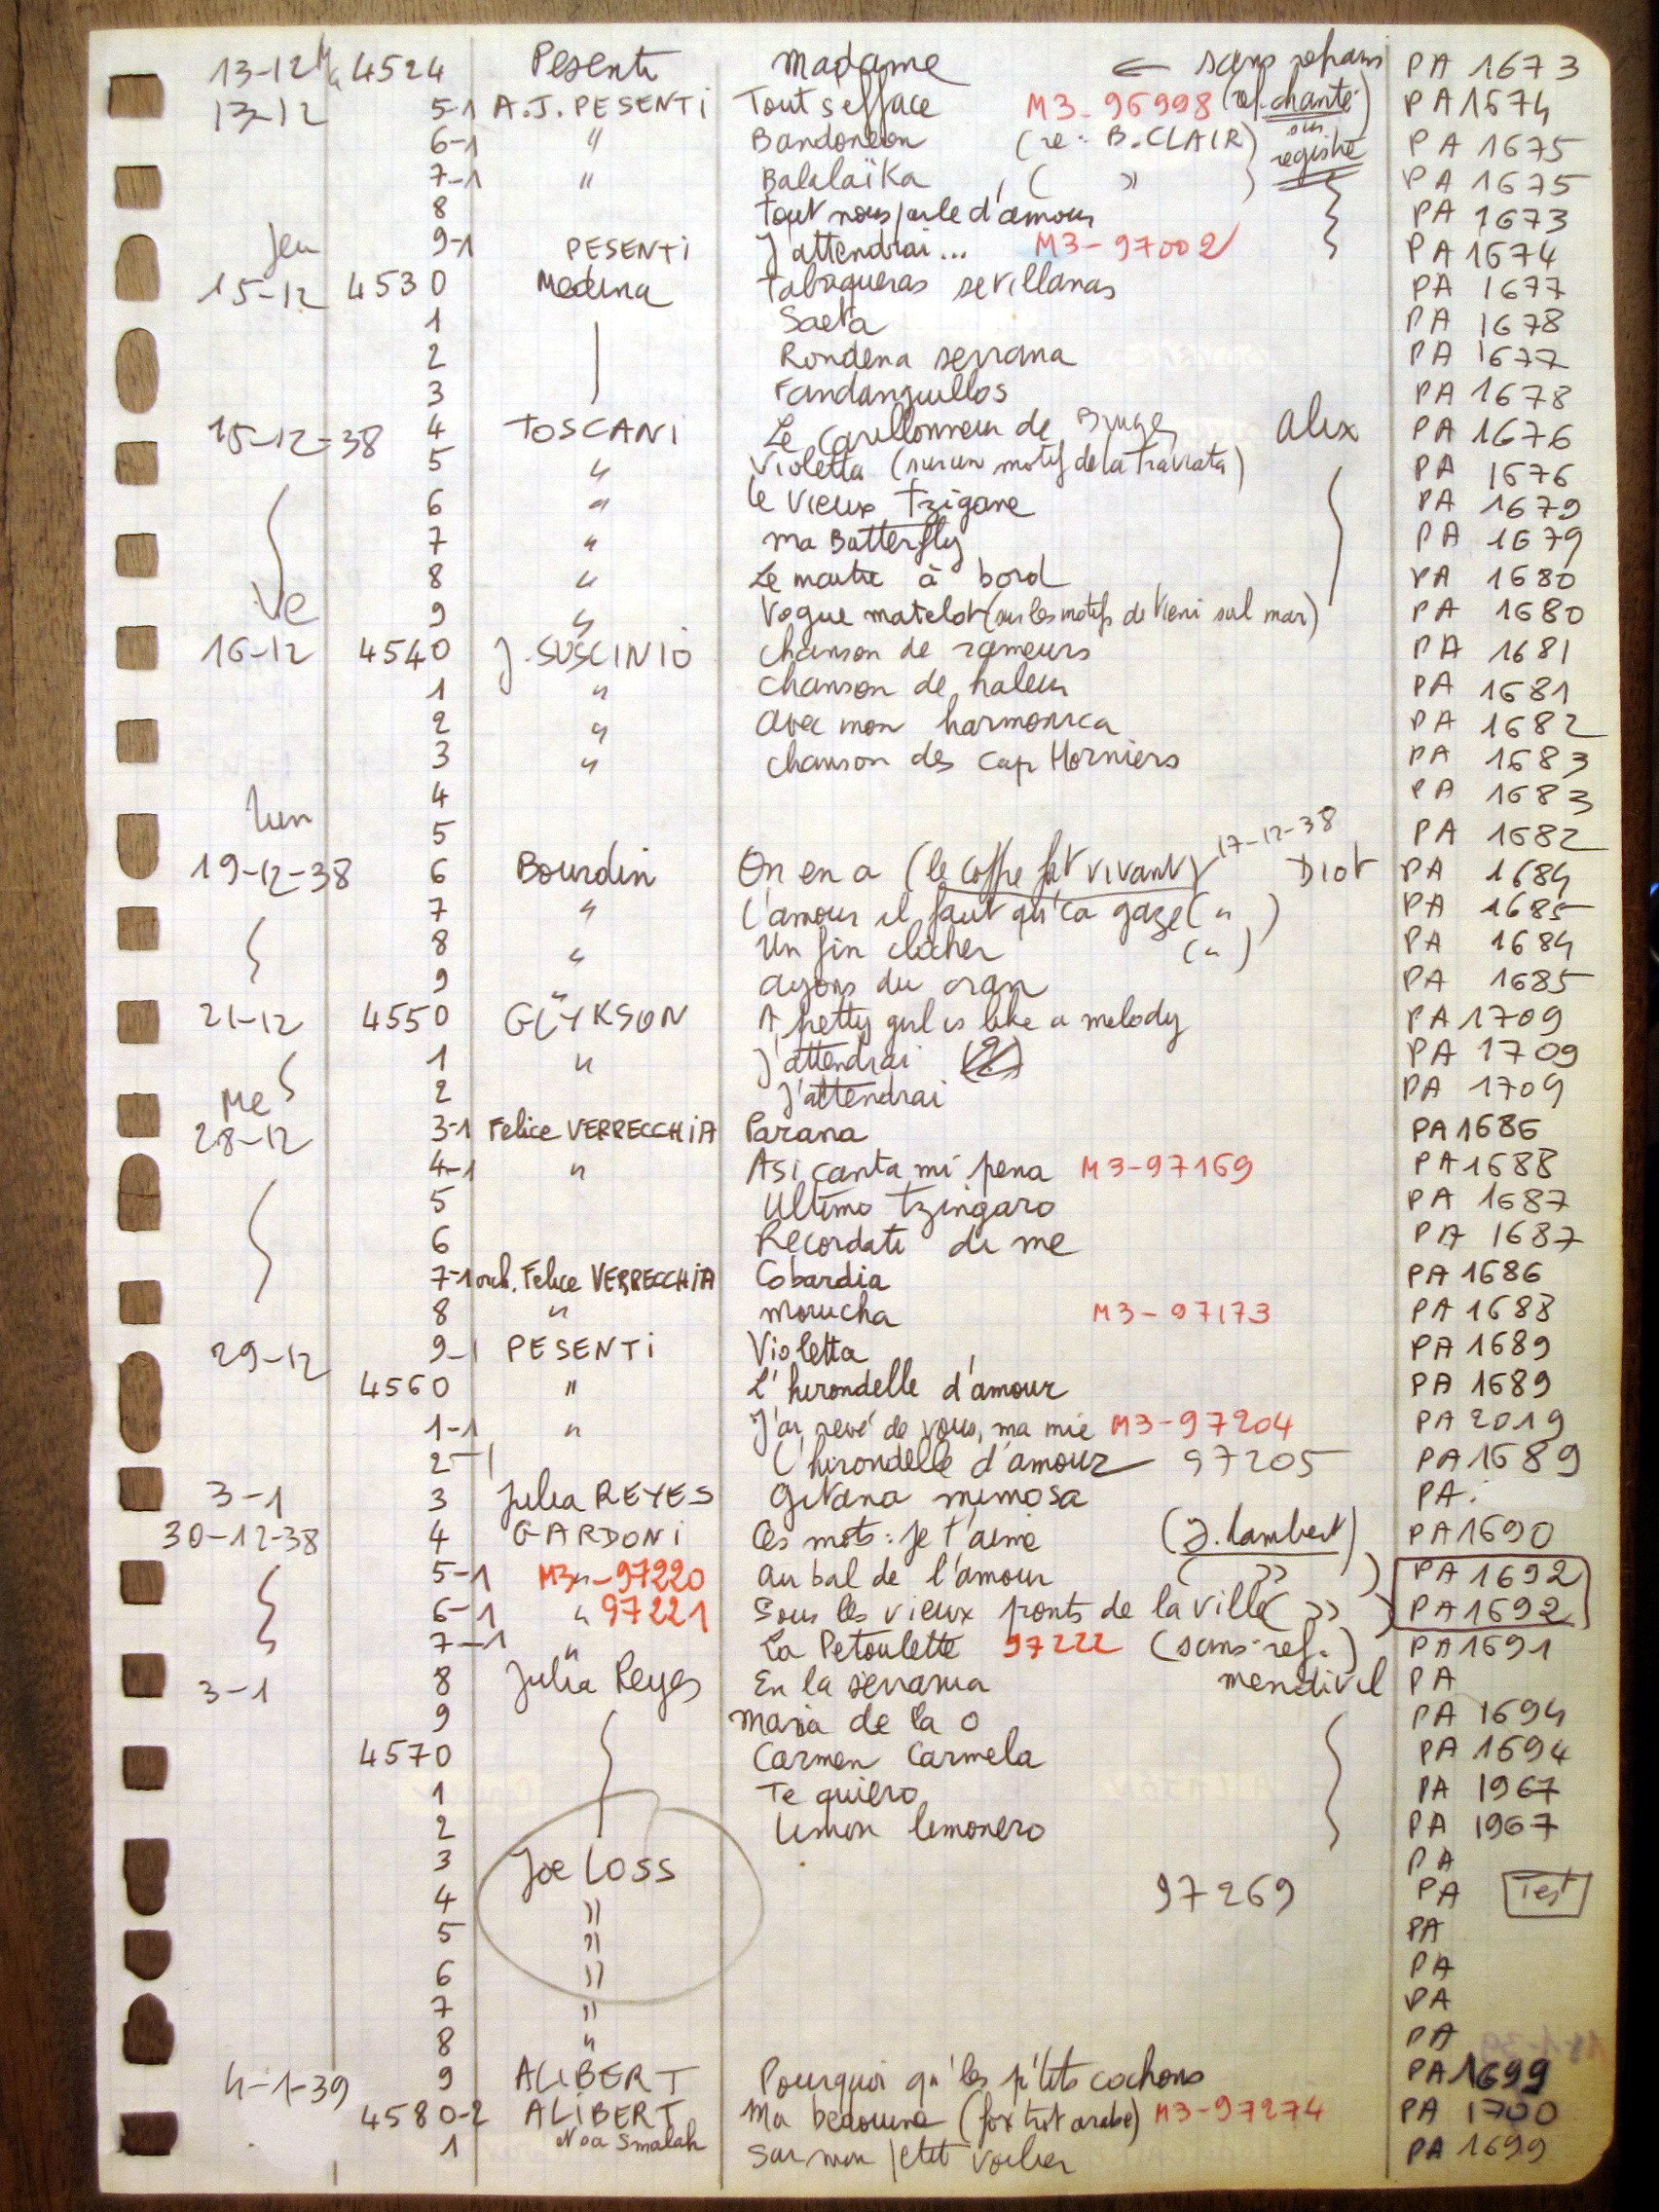 13-12 Ma 4524 Pesenti Madame ← sans refrain PA 1673
13-12 5-1 A.J. PESENTI Tout s'efface M3-96998 (ref. chanté PA 1674
6-1 " Bandonéon (re: B.CLAIR) sur registre PA 1675
7-1 " Balalaïka ( " ) PA 1675
8 Tout nous parle d'amour PA 1673
Jeu 9-1 PESENTI J'attendrai... M3-97002 PA 1674
15-12 4530 Medina Tabaqueras sevillanas PA 1677
1 Saeta PA 1678
2 Rondena serrana PA 1677
3 Fandanguillos PA 1678
15-12-38 4 TOSCANI Le Carillonneur de Bruges alix PA 1676
5 " Violetta (sur un motif de la Traviata) PA 1676
6 " le vieux Tzigane PA 1679
7 " ma Butterfly PA 1679
8 " Le maitre à bord PA 1680
Ve 9 " Vogue matelot (sur les motifs de Vieni sul mar) PA 1680
16-12 4540 J. SUSCINIO chanson de rameurs PA 1681
1 " chanson de haleur PA 1681
2 " avec mon harmonica PA 1682
3 " chanson des Cap Horniers PA 1683
4 PA 1683
Lun 5 PA 1682
17-12-38
19-12-38 6 Bourdin On en a (le coffre fort vivant) Diot PA 1684
7 " L'amour il faut qu'ca gaze ( " ) PA 1685
8 " Un fin clocher ( " ) PA 1684
9 " ayons du cran PA 1685
21-12 4550 GLŸKSON A pretty girl is like a melody PA 1709
1 " J'attendrai PA 1709
Me 2 J'attendrai PA 1709
28-12 3-1 Felice VERRECCHIA Parana PA 1686
4-1 " Asi canta mi pena M3-97169 PA 1688
5 Ultimo Tzingaro PA 1687
6 Recordati di me PA 1687
7-1 orch. Felice VERRECCHIA Cobardia PA 1686
8 " Morucha M3-97173 PA 1688
29-12 9-1 PESENTI Violetta PA 1689
4560 " L'hirondelle d'amour PA 1689
1-1 " J'ai revé de vous, ma mie M3-97204 PA 2019
2-1 L'hirondelle d'amour 97205 PA 1689
3-1 3 Julia REYES Gitana mimosa PA.
30-12-38 4 GARDONI Ces mots: je t'aime (J. Lambert) PA 1690
5-1 M3-97220 Au bal de l'amour ( " ) PA 1692
6-1 " 97221 Sous les vieux ponts de la ville ( " ) PA 1692
7-1 " La Petoulette 97222 (sans ref.) PA 1691
3-1 8 Julia Reyes En la serrania mendivil PA
9 Maria de la O PA 1694
4570 Carmen Carmela PA 1694
1 Te quiero PA 1967
2 Limon limonero PA 1967
3 Joe LOSS PA
4 " 97269 PA Test
5 " PA
6 " PA
7 " PA
8 " PA
4-1-39 9 ALIBERT Pourquoi qu'les p'tits cochons PA 1699
4580-2 ALIBERT Ma bédouine (fox trot arabe) M3-97274 PA 1700
1 Noa Smalah Sur mon petit voilier PA 1699